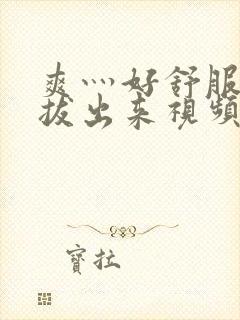 爽灬好舒服
拔出来視頻
寶拉